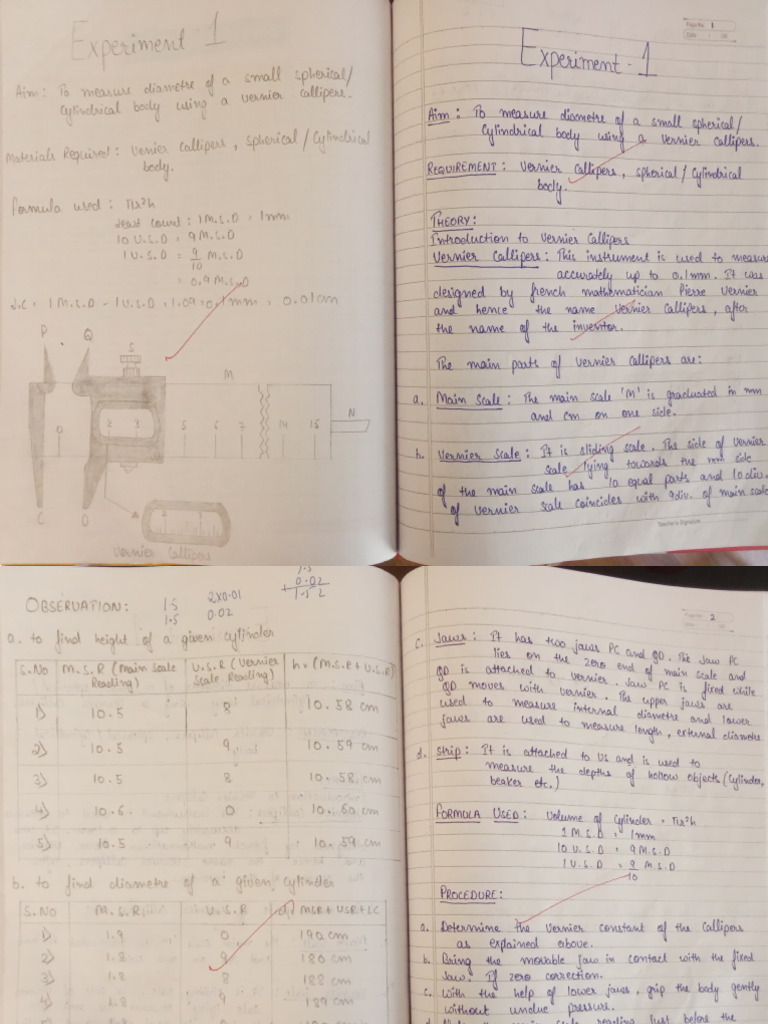 Experiment 1
Aim: To measure diametre of a small spherical/
Cylindrical body using a vernier callipers.
Materials Required: Vernier Callipers, Spherical/Cylindrical
body.
Formula used: πr²h
Least count: 1 M.S.D = 1mm
10 V.S.D = 9 M.S.D
1 V.S.D = 9/10 M.S.D
= 0.9 M.S.D
L.C = 1 M.S.D - 1 V.S.D = 0.1mm = 0.01cm
P Q S M N
0 2 3 5 6 7 14 15
C D A
Vernier Callipers
Page No. 1
Date
Experiment - 1
Aim: To measure diametre of a small spherical/
Cylindrical body using a vernier callipers.
REQUIREMENT: Vernier Callipers, spherical/Cylindrical
body.
THEORY:
Introduction to Vernier Callipers
Vernier Callipers: This instrument is used to measure
accurately up to 0.1mm. It was
designed by french mathematician Pierre Vernier
and hence the name vernier Callipers, after
the name of the inventor.
The main parts of Vernier Callipers are:
a. Main Scale: The main scale 'M' is graduated in mm
and cm on one side.
b. Vernier Scale: It is sliding scale. The side of vernier
scale lying towards the mm side
of the main scale has 10 equal parts and 10 div.
of vernier scale coincides with 9 div. of main scale
Teacher's Signature
OBSERVATION:
1.5 2x0.01
1.5 0.02
1.5
+ 0.02
1.5 2
a. to find height of a given cylinder
S.No M.S.R (Main Scale Reading) V.S.R (Vernier Scale Reading) h = (M.S.R + V.S.R)
1) 10.5 8 10.58 cm
2) 10.5 9 10.59 cm
3) 10.5 8 10.58 cm
4) 10.6 0 10.60 cm
5) 10.5 9 10.59 cm
b. to find diametre of a given cylinder
S.No M.S.R V.S.R MSR + VSR + LC
1) 1.9 0 190 cm
2) 1.8 9 180 cm
3) 1.8 8 188 cm
4) 1.8 9 189 cm
Page No. 2
c. Jaws: It has two jaws PC and QD. The Jaw PC
lies on the zero end of main scale and
QD is attached to vernier. Jaw PC is fixed while
QD moves with vernier. The upper jaws are
used to measure internal diametre and lower
jaws are used to measure length, external diametre
d. Strip: It is attached to VS and is used to
measure the depths of hollow objects (Cylinder,
beaker etc.)
FORMULA USED: Volume of Cylinder = πr²h
1 M.S.D = 1mm
10 V.S.D = 9 M.S.D
1 V.S.D = 9/10 M.S.D
PROCEDURE:
a. Determine the Vernier constant of the Callipers
as explained above.
b. Bring the movable jaw in contact with the fixed
jaw. If zero correction.
c. With the help of lower jaws, grip the body gently
without undue pressure.
scale reading just before the